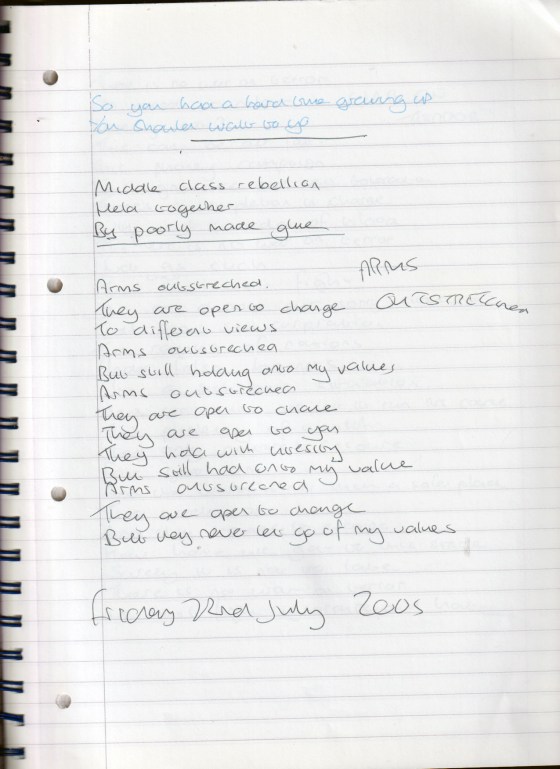 So you had a hard time growing up
You should wake to go
Middle class rebellion
Held together
By poorly made glue
ARMS
OUTSTRETCHED
Arms outstreched.
They are open to change
To different views
Arms outstreched
But still holding onto my values
Arms outstreched
They are open to chane
They are open to you
They hold with
But still hold onto my value
Arms outstreched
They are open to change
But they never let go of my values
Friday 22nd July 2005